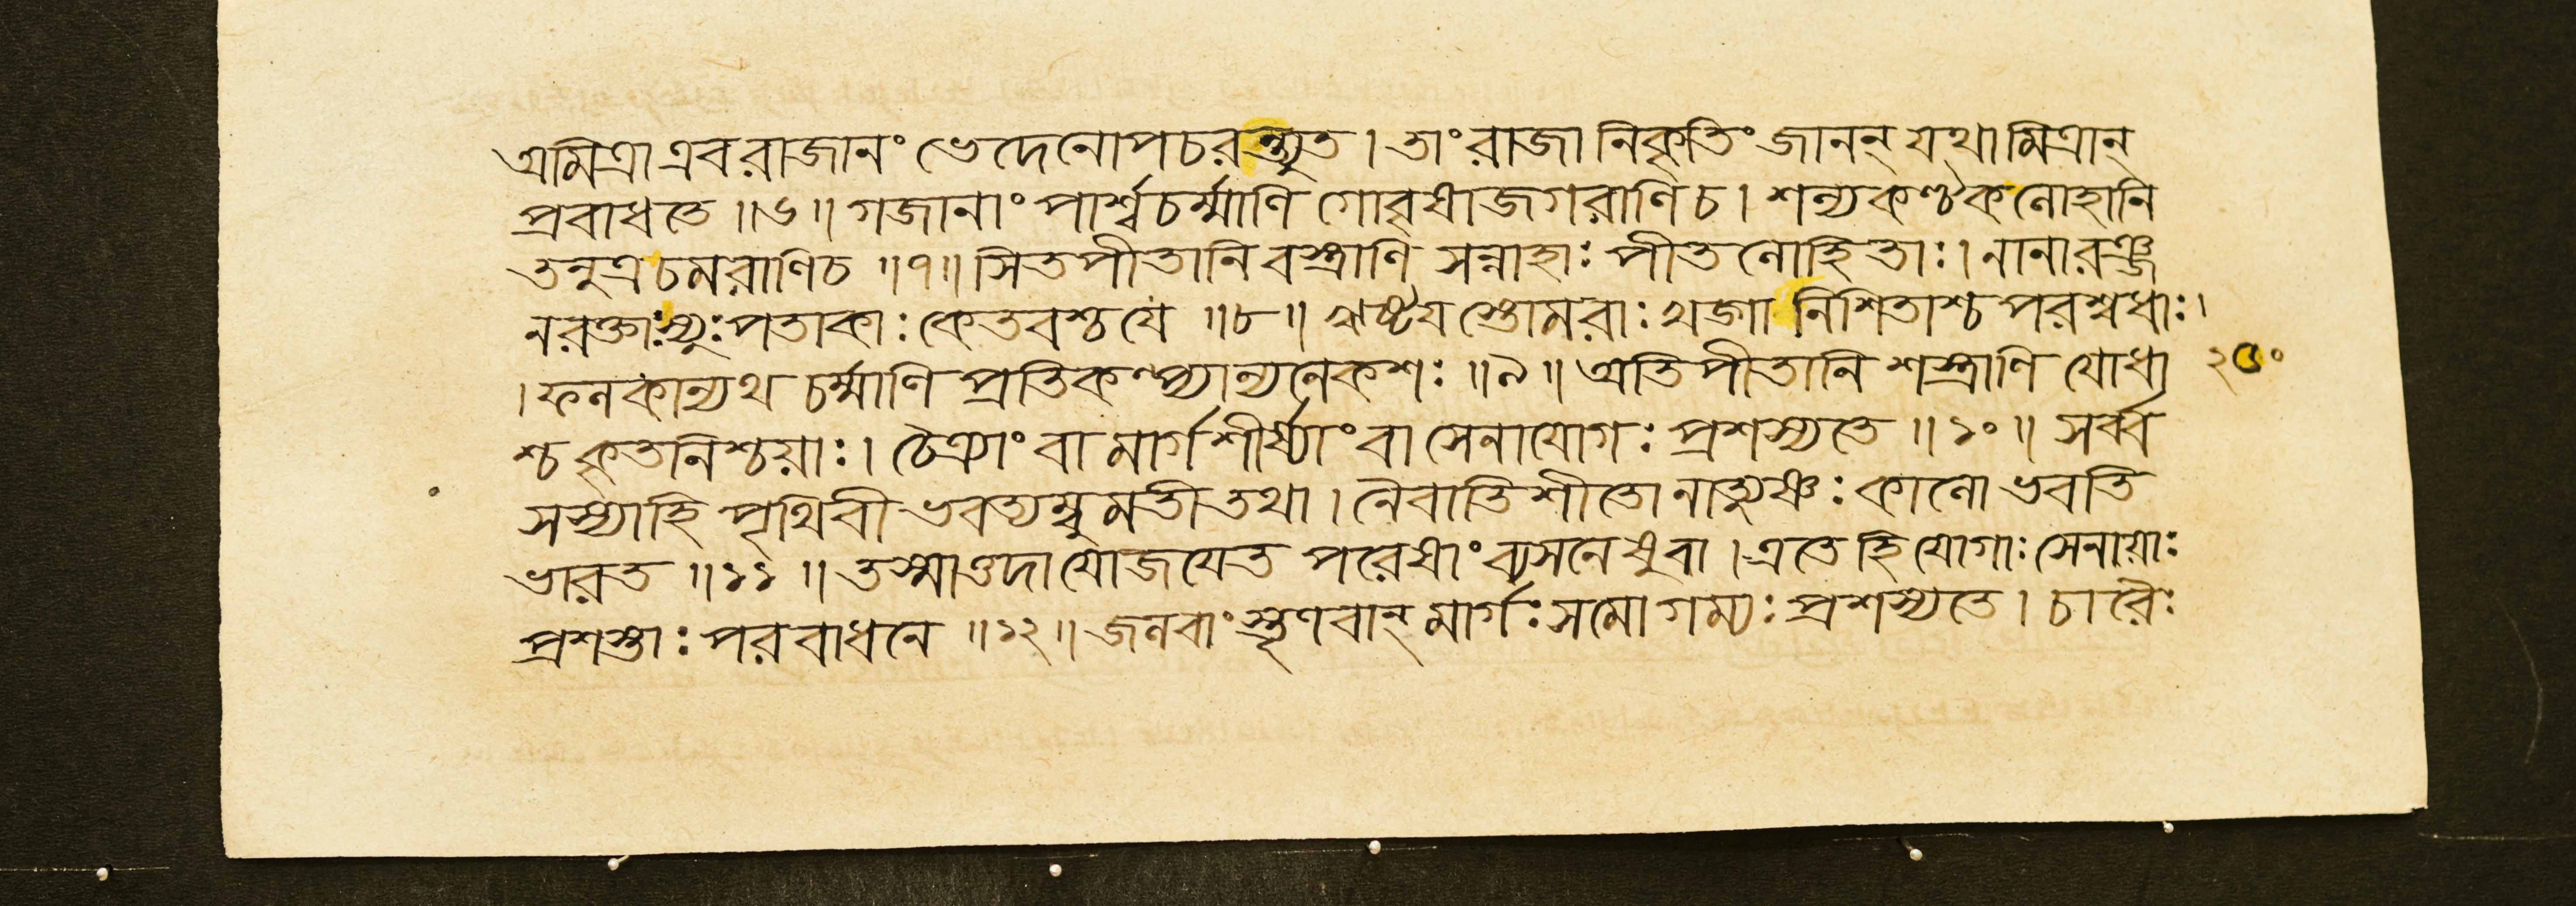 অমিত্রা এব রাজানং ভেদেনোপচরন্ত্যুত । তাং রাজা নিকৃতিং জানন্ যথামিত্রান্
প্রবাধতে ॥ ৬ ॥ গজানাং পার্শ্বচর্ম্মাণি গোবৃষাজগরাণি চ । শল্যকণ্টকলোহানি
তনুত্রচমরাণি চ ॥ ৭ ॥ সিতপীতানি বস্ত্রাণি সন্নাহাঃ পীতলোহিতাঃ । নানারঞ্জ
নরক্তাঃস্যুঃ পতাকাঃ কেতবশ্চ যে ॥ ৮ ॥ ঋষ্টযস্তোমরাঃ খড়্গা নিশিতাশ্চ পরশ্বধাঃ ।
। ফলকান্যথ চর্ম্মাণি প্রতিকল্প্যান্যনেকশঃ ॥ ৯ ॥ অতিপীতানি শস্ত্রাণি যোধা ২৫০
শ্চ কৃতনিশ্চয়াঃ । চৈত্র্যাং বা মার্গশীর্ষ্যাং বা সেনাযোগঃ প্রশস্যতে ॥ ১০ ॥ সর্ব্ব
সস্যাহি পৃথিবী ভবত্যম্বুমতী তথা । নৈবাতিশীতো নাত্যুষ্ণঃ কালো ভবতি
ভারত ॥ ১১ ॥ তস্মাত্তদা যোজযেত পরেষাং ব্যসনেষু বা । এতে হি যোগাঃ সেনায়াঃ
প্রশস্তাঃ পরবাধনে ॥ ১২ ॥ জলবাংস্তৃণবান্ মার্গঃ সমো গম্যঃ প্রশস্যতে । চারৈঃ